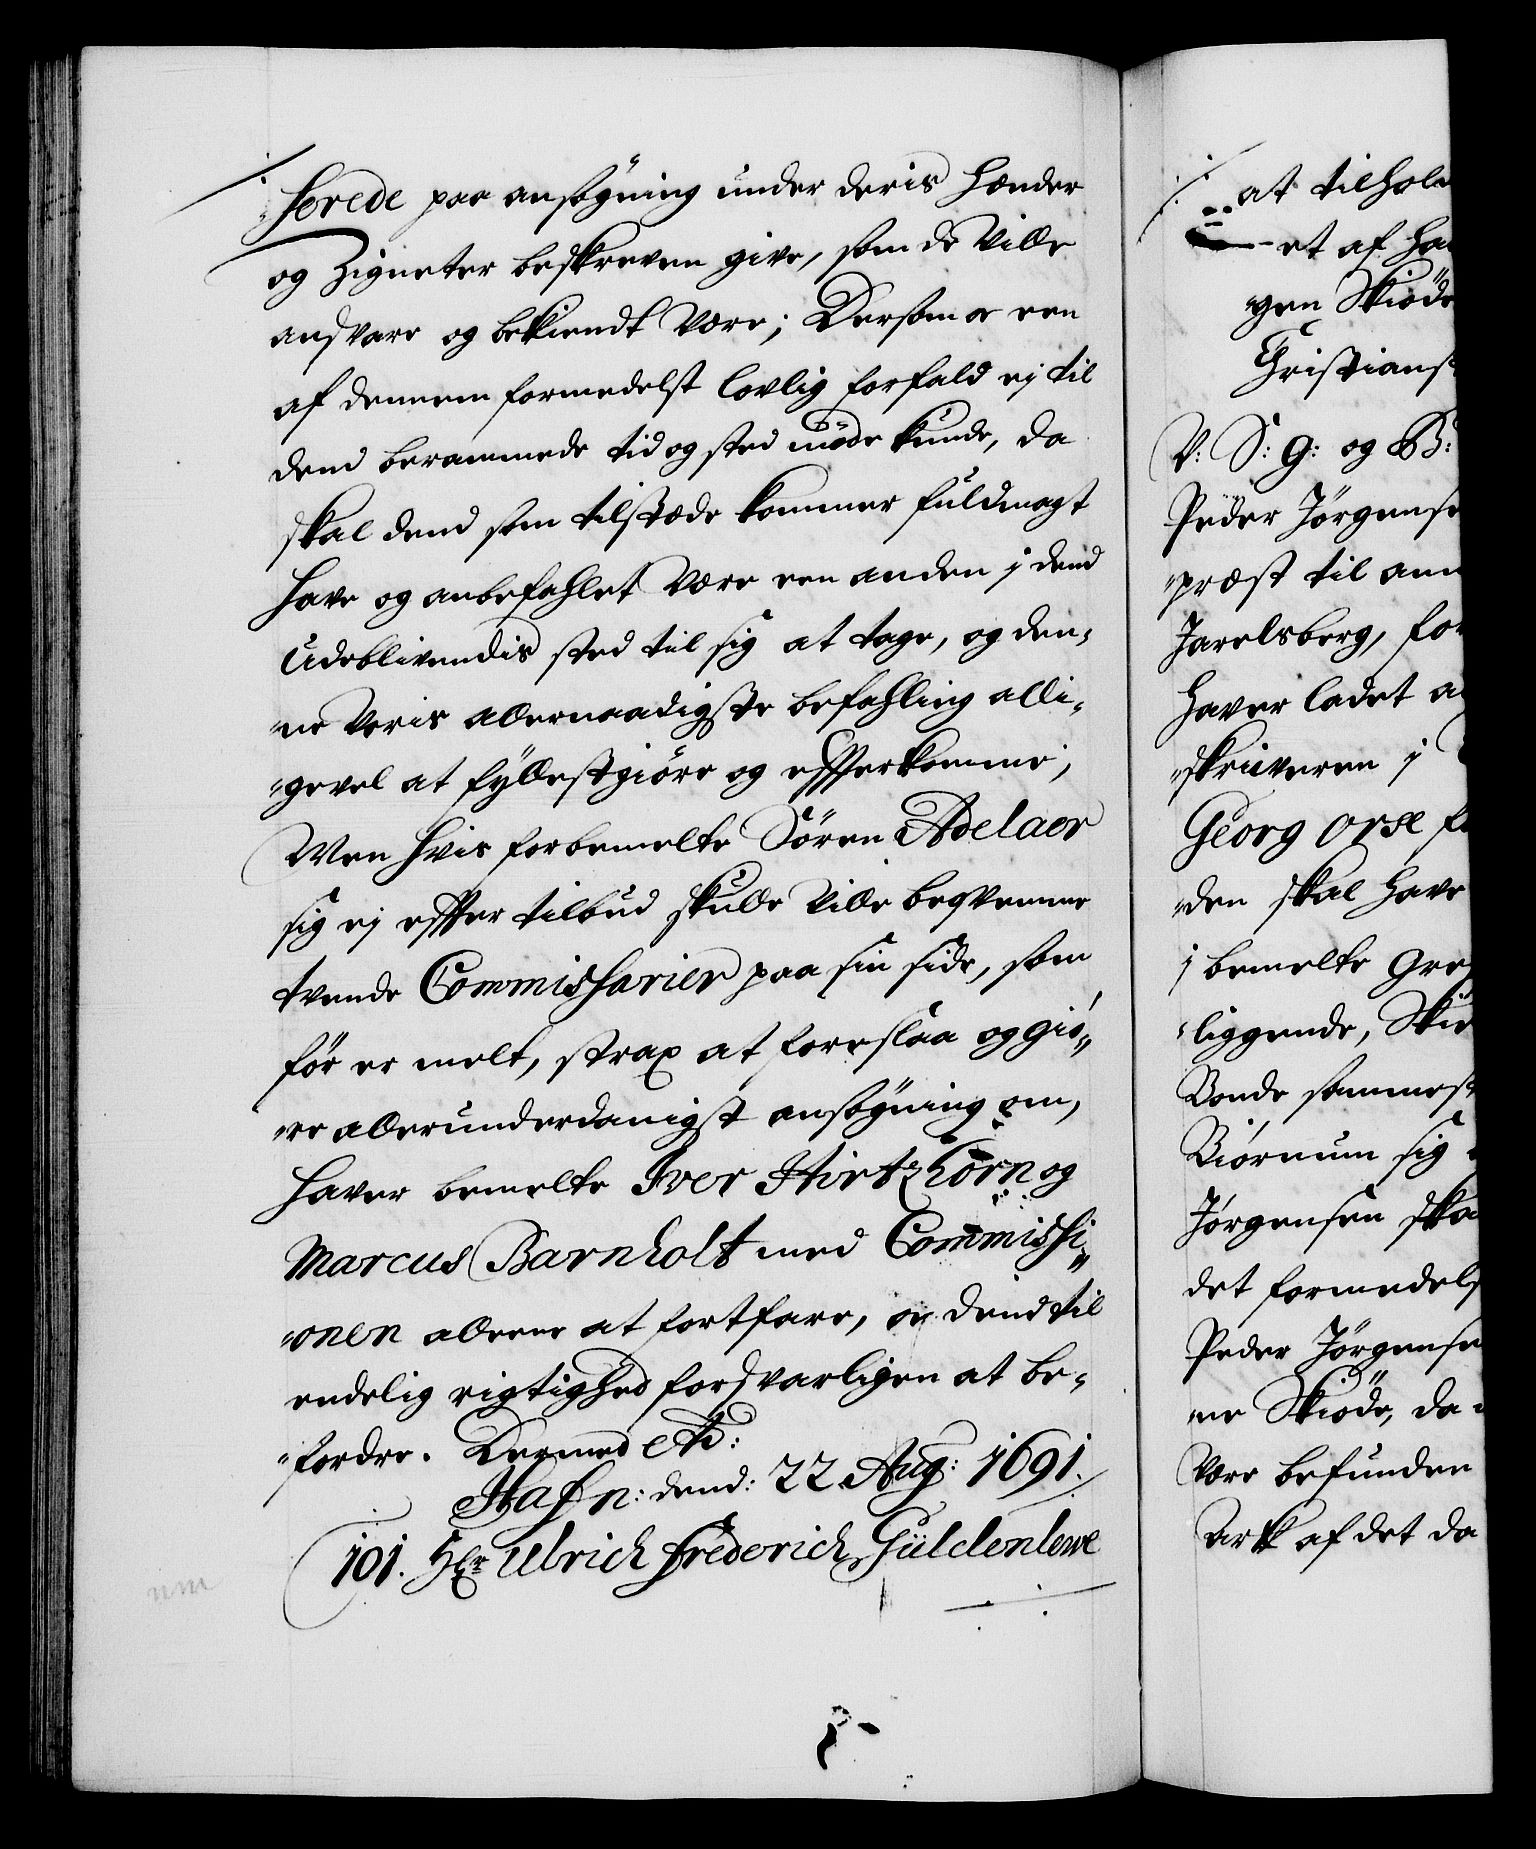 "serede paa ansøgning under deris Hænder
og Zigneter beskreven give, som de Ville
andsvare og bekiendt Være; Dersom oc een
af dennem formedelst lovlig forfald ej til
dend berammede tid og sted møde kunde, da
skal dend som tilstæde kommer fuldmagt
have og anbefahlet Være een anden i dend
Udeblivendis sted til sig at tage, og den„
„ne Voris allernaadigste befahling alli„
„gevel at fyllestgiøre og effterkomme;
Men hvis forbemelte Søren Adelaer
sig ej effter tilbud skulle Ville beqvemme
tvende Commissarier paa sin side, som
før er melt, strax at foreslaa og giö„
„re allerunderdanigst ansøgning om,
haver bemelte Iver Hirtzhorn og
Marcus Barnholt med Commissi„
„onen alleene at fortfare, oc dend til
endelig rigtighed forsvarligen at be„
„fordre. Dermed etc:
Hafn: dend: 22 Aug: 1691.
101. Hr Ulrich Frederich Güldenlewe
at tilhol
et af ha
„gen Skiöde
Christians
V: S: G: og B:
Peder Jørgense
„præst til ann
Jarelsberg, for
haver ladet a
„skriveren i
Georg Orse f
„den skal have
i bemelte Gre
„liggende, Skiö
Bonde sammest
Biørnum sig
Jørgensen ska
det formedels
Peder Jørgense
„ne Skiöde, da
Være befunden
Ark af det da